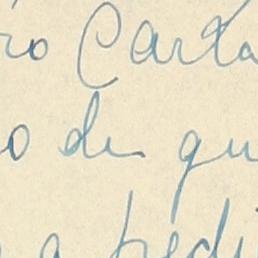 ro Carta
o de qu
a pedi